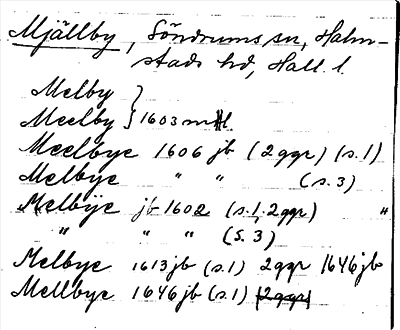 Mjällby, Söndrums sn, Halm-
stads hd, Hall. l.
Melby }
Meelby } 1603 mtl
Meelbye 1606 jb (2ggr) (s.1)
Melbye " " (s.3)
Melbÿe jb 1602 (s.1, 2ggr) "
" " " (S. 3)
Melbye 1613 jb (s.1) 2ggr 1646 jb
Mellbye 1646 jb (s.1) 2ggr